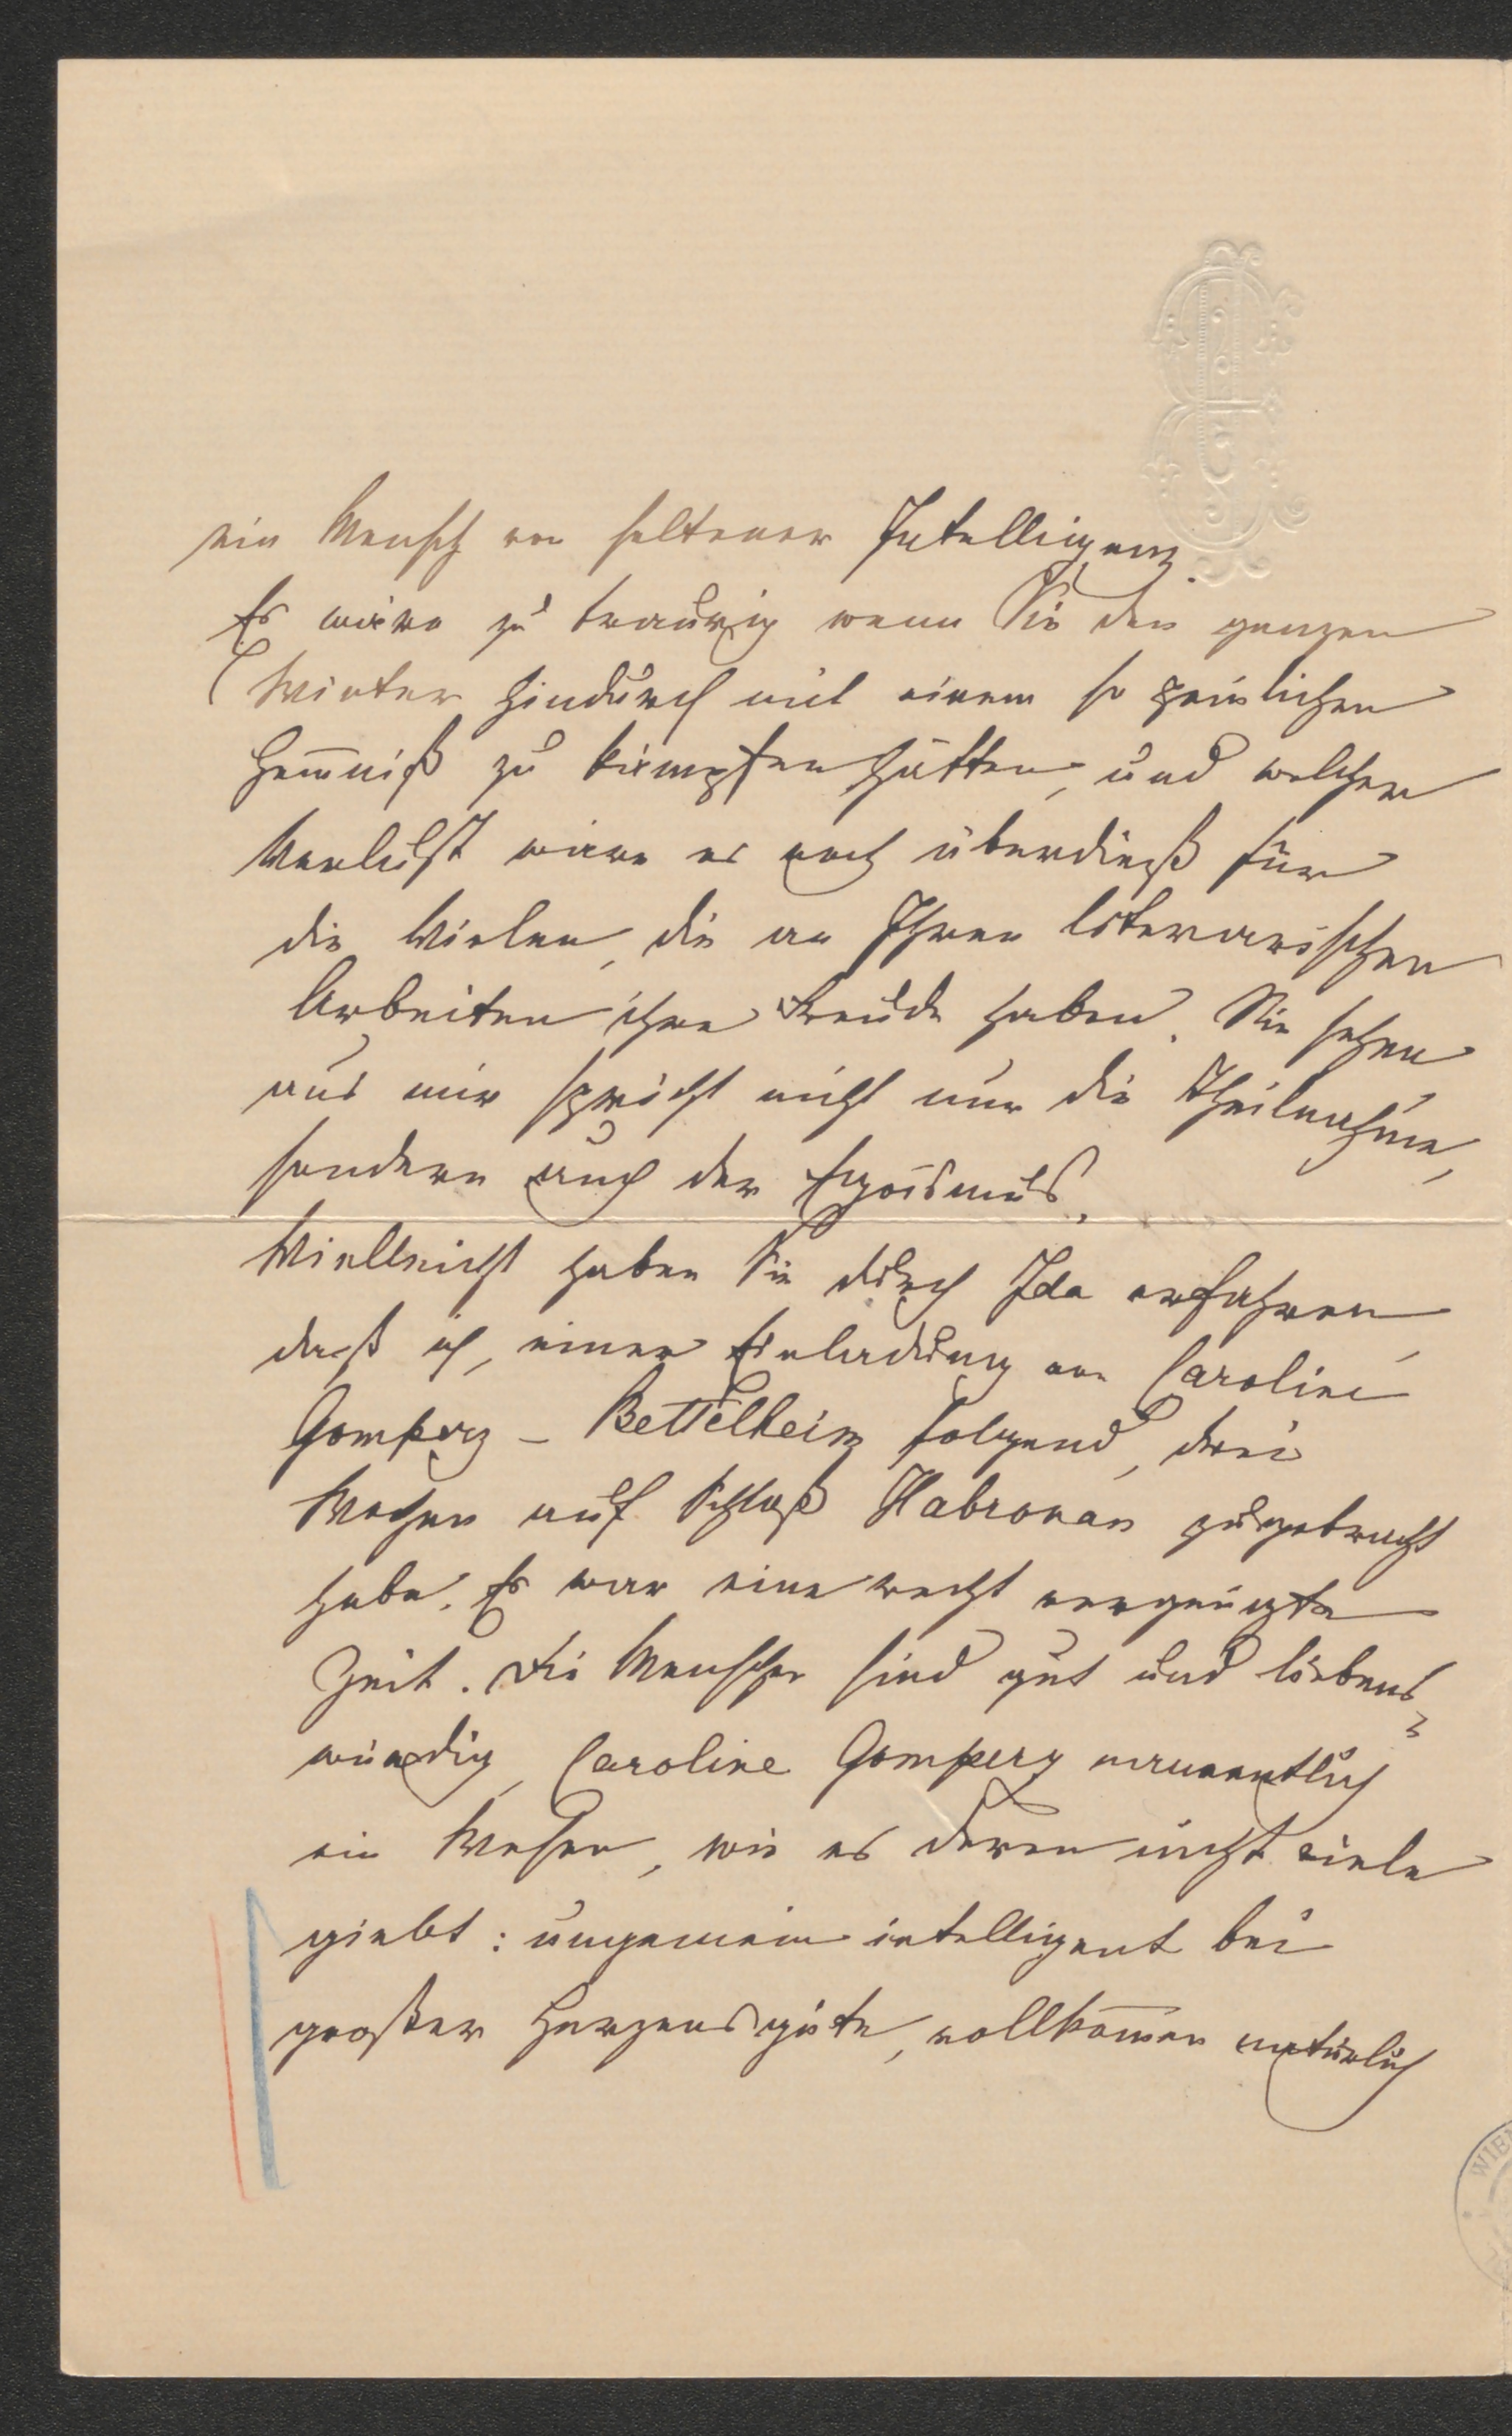 ein Mensch von seltener Intelligenz.
Es wäre zu traurig wenn Sie den ganzen
Winter hindurch mit einem so peinlichen
Hem̅niß zu kämpfen hätten, und welcher
Verlust wäre es noch überdieß für
die Vielen, die an Ihren literarischen
Arbeiten ihre Freude haben. Sie sehen
aus mir spricht nicht nur die Theilnahme,
sondern auch der Egoismus.
Vielleicht haben Sie durch Ida erfahren,
daß ich, einer Einladung von Caroline
Gomperz-Bettelheim folgend, drei
Wochen auf Schloß Habrovan zugebracht
habe. Es war eine recht vergnügte
Zeit. Die Menschen sind gut und liebens-
würdig, Caroline Gomperz namentlich
ein Wesen, wie es deren nicht viele
giebt: ungemein intelligent bei
großer Herzensgüte, vollkom̅en natürlich
WIEN